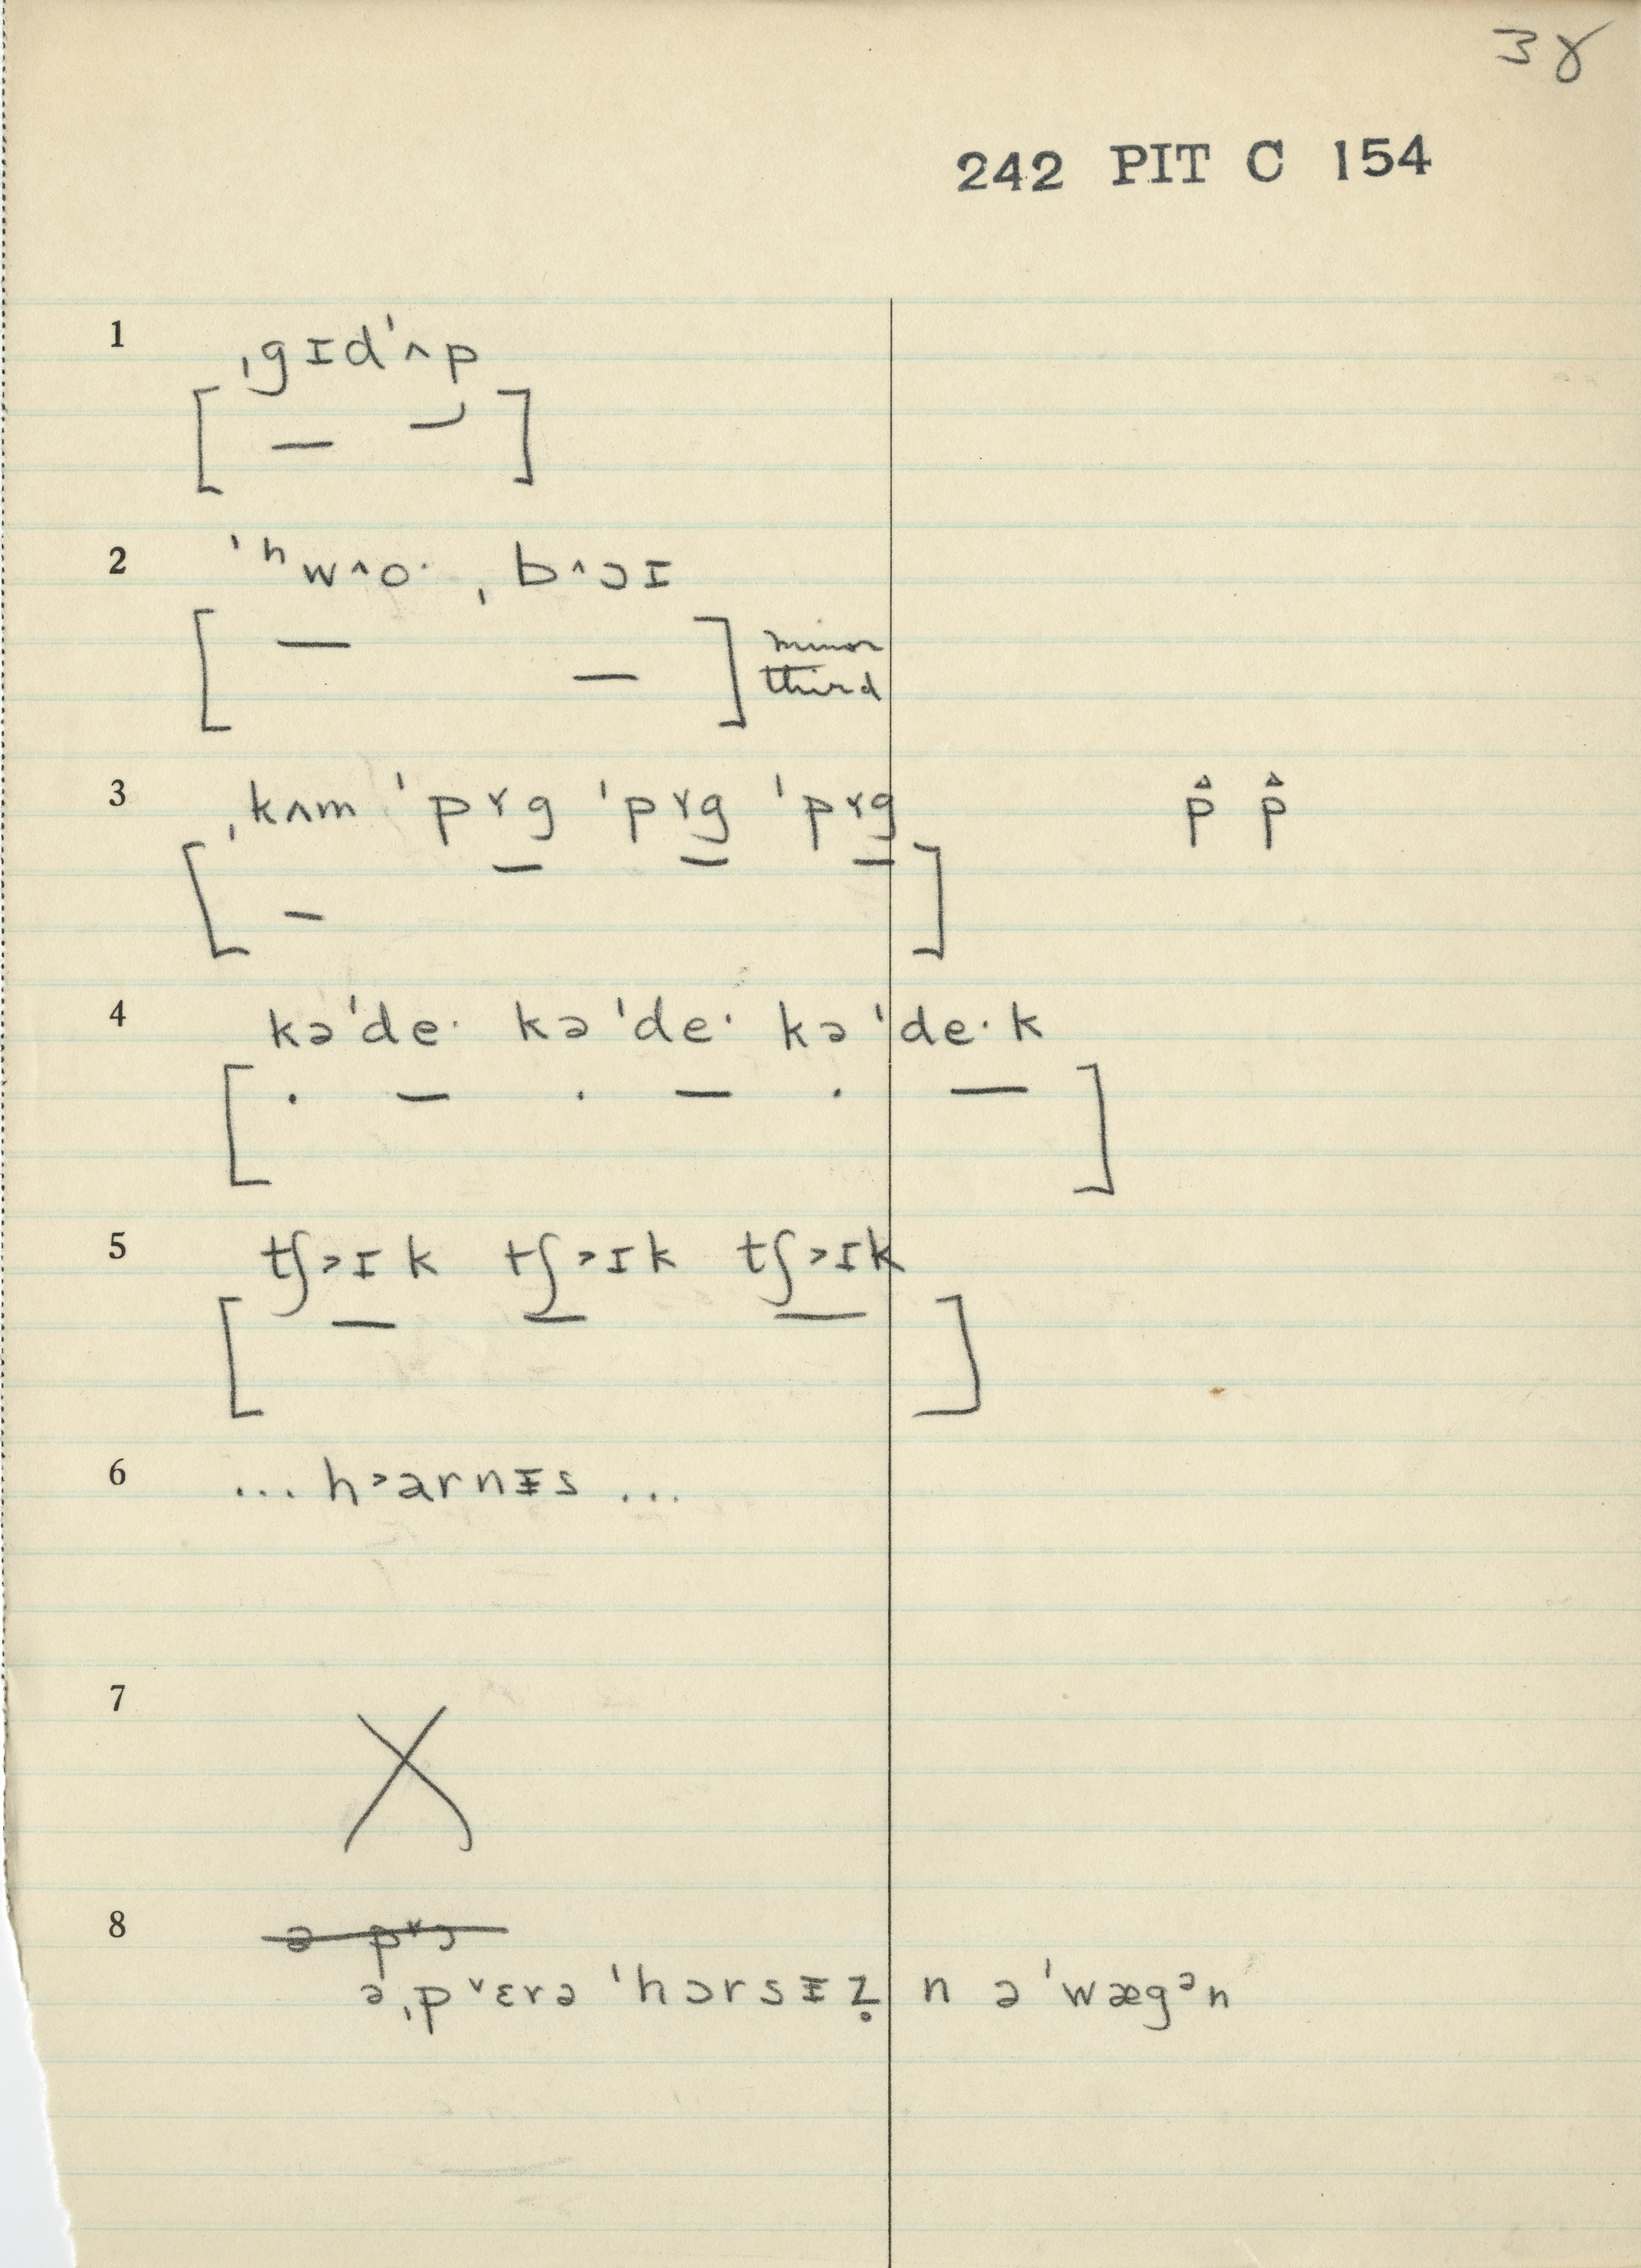 38
242 PIT C 154
1 ˌgɪdˈʌp
2 ˈʰwʌo· ˌbʌɔɪ
minor
third
3 ˌkʌm ˈpɤg ˈpɤg ˈpɤg p̂ p̂
4 kəˈde· kəˈde· kəˈde·k
5 tʃ>ɪk tʃ>ɪk tʃ>ɪk
6 ... h>arnɪ̵s ...
7
8 ə p˅ɔ
əˌp˅ɛrə ˈhɔrsɪ̵z̥ n əˈwægᵊn